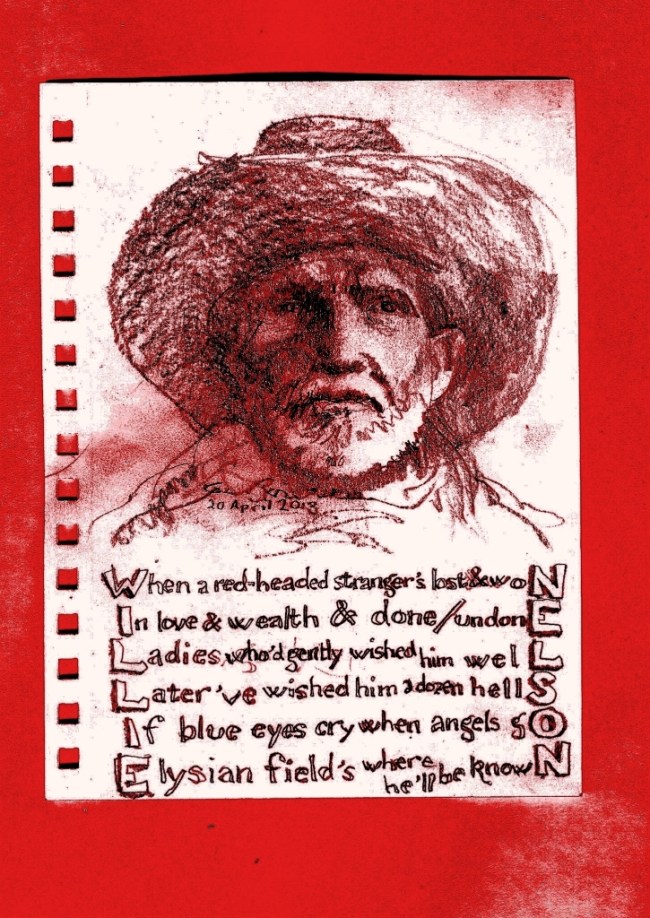 20 April 2013
When a red-headed stranger's lost & woN
In love & wealth & done/undonE
Ladies, who'd gently wished him welL
Later've wished him a dozen hellS
If blue eyes cry when angels gO
Elysian field's where he'll be knowN